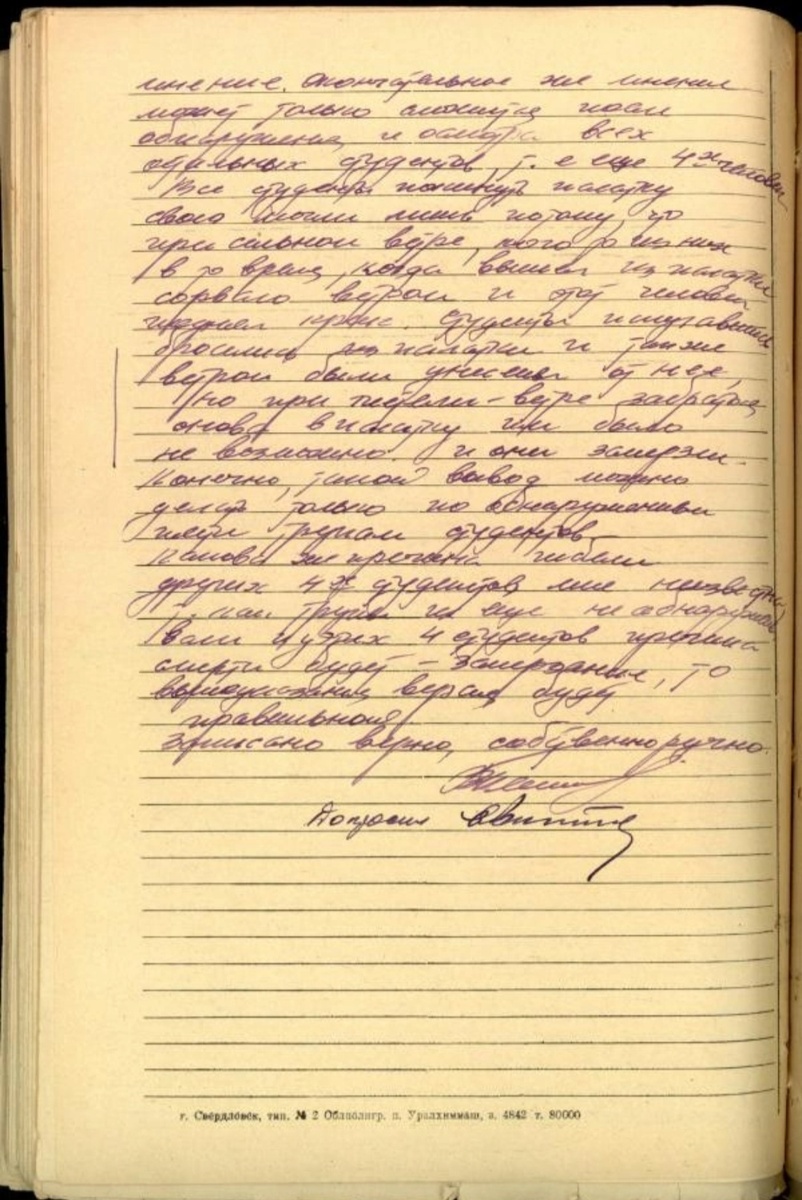 мнение. Окончательное же мнение
может только сложится после
обнаружения и осмотра всех
остальных студентов, т. е еще 4х человек
Все студенты покинуть палатку
свою могли лишь потому, что
при сильном ветре, кого то из них
в то время, когда вышел из палатки
сорвало ветром и этот человек
крикнул. Студенты испугавшись
бросились из палатки и также
ветром были унесены от нее,
но при метели-ветре забраться
снова в палатку им было
не возможно. и они замерзли.
Конечно, такой вывод можно
делать только по обнаружению
пяти трупам студентов.
Какова же причина гибели
других 4х студентов мне неизвестно,
т. как трупы их еще не обнаружены
Если и у этих 4 студентов причина
смерти будет - замерзание, то
вышеуказанная версия будет
правильной.
Записано верно, собственноручно.
Допросил
г. Свердловск, тип. № 2 Облполигр. п. Уралхиммаш, з. 4842 т. 80000